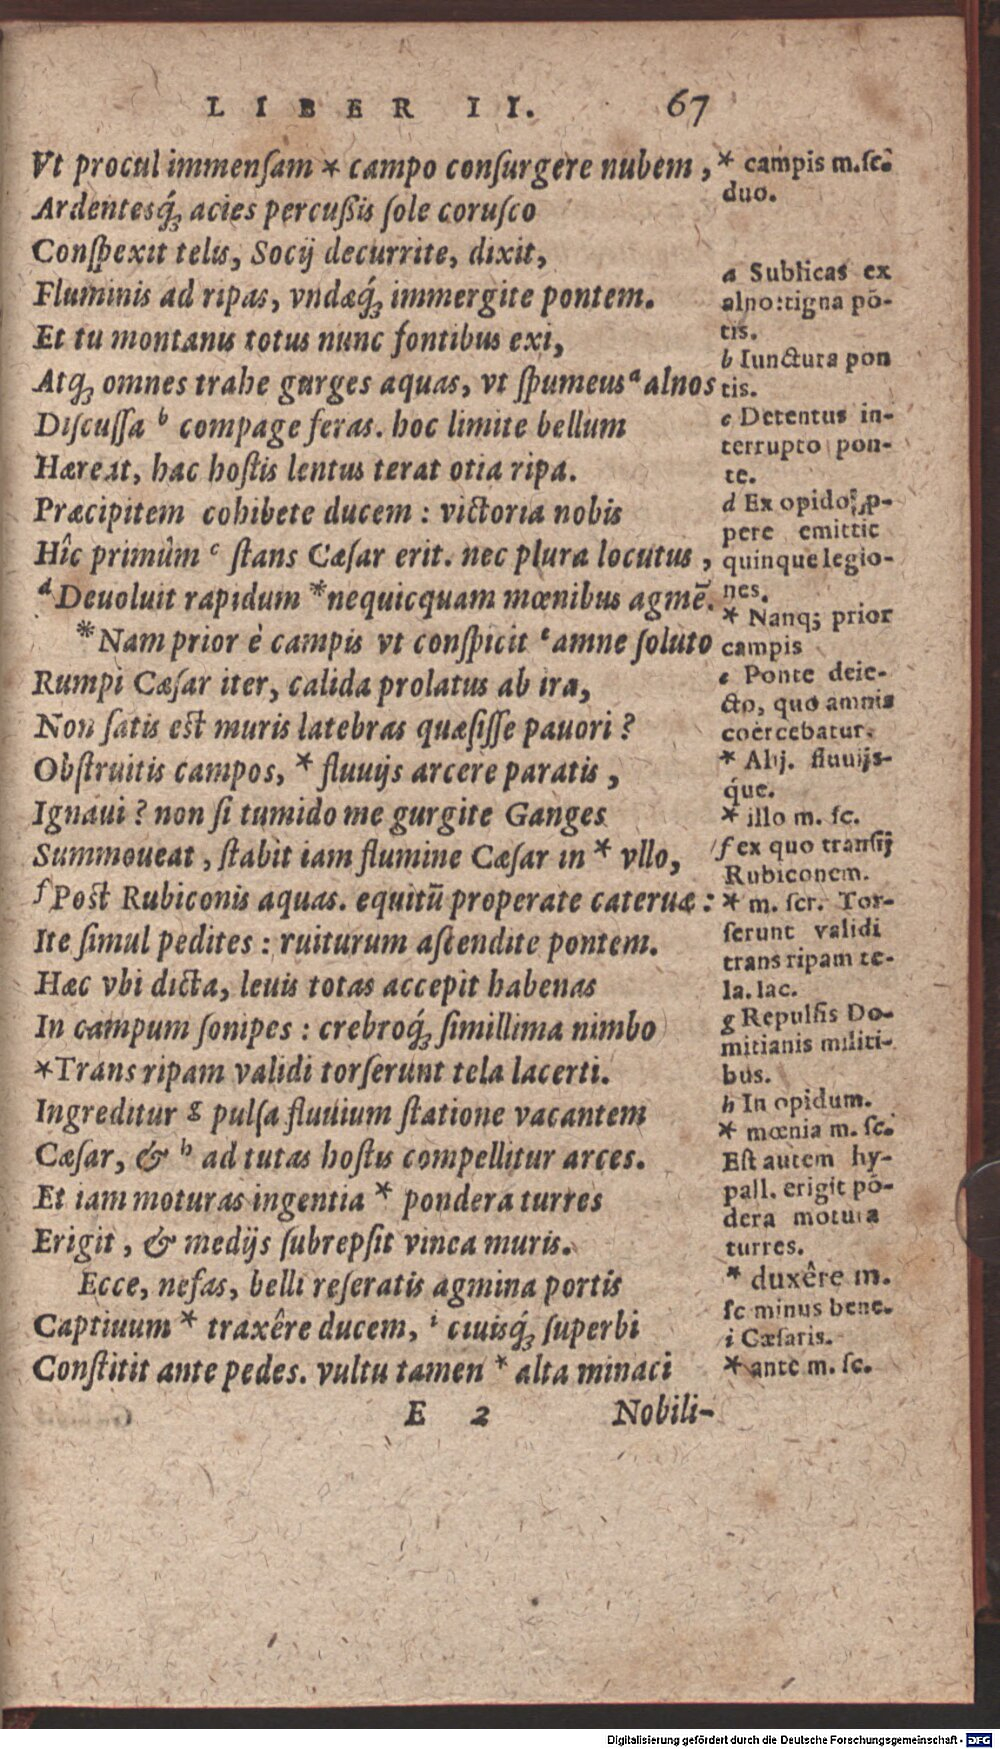 LIBER II. 67
Vt procul immenſam * campo conſurgere nubem,
Ardentesq́; acies percuſsis ſole coruſco
Conſpexit telis, Socij decurrite, dixit,
Fluminis ad ripas, vndæq́; immergite pontem.
Et tu montanis totus nunc fontibus exi,
Atq; omnes trahe gurges aquas, vt ſpumeus a alnos
Diſcuſſa b compage feras. hoc limite bellum
Hæreat, hac hoſtis lentus terat otia ripa.
Præcipitem cohibete ducem : victoria nobis
Hîc primùm c ſtans Cæſar erit. nec plura locutus,
d Deuoluit rapidum *nequicquam mœnibus agmē.
*Nam prior è campis vt conſpicit e amne ſoluto
Rumpi Cæſar iter, calida prolatus ab ira,
Non ſatis eſt muris latebras quæſiſſe pauori ?
Obſtruitis campos, * fluuijs arcere paratis,
Ignaui ? non ſi tumido me gurgite Ganges
Summoueat, ſtabit iam flumine Cæſar in * vllo,
f Poſt Rubiconis aquas. equitū properate cateruæ :
Ite ſimul pedites : ruiturum aſcendite pontem.
Hæc vbi dicta, leuis totas accepit habenas
In campum ſonipes : crebroq́; ſimillima nimbo
*Trans ripam validi torſerunt tela lacerti.
Ingreditur g pulſa fluuium ſtatione vacantem
Cæſar, & h ad tutas hoſtis compellitur arces.
Et iam moturas ingentia * pondera turres
Erigit, & medijs ſubrepſit vinea muris.
Ecce, nefas, belli reſeratis agmina portis
Captiuum * traxêre ducem, i ciuisq́; ſuperbi
Conſtitit ante pedes. vultu tamen * alta minaci
E 2 Nobili-
* campis m.ſc.
duo.
a Sublicas ex
alno:tigna pō-
tis.
b Iunctura pon
tis.
c Detentus in-
terrupto pon-
te.
d Ex opido
pere emittit
quinque legio-
nes.
* Nanq; prior
campis
e Ponte deie-
cto, quo amnis
coërcebatur.
* Alij. fluuijs-
que.
* illo m. ſc.
f ex quo tranſij
Rubiconem.
* m. ſcr. Tor-
ſerunt validi
trans ripam te-
la. lac.
g Repulſis Do-
mitianis militi-
bus.
h In opidum.
* mœnia m. ſc.
Eſt autem hy-
pall. erigit pō-
dera motura
turres.
* duxêre m.
ſc minus bene.
i Cæſaris.
* ante m. ſc.
Digitalisierung gefördert durch die Deutsche Forschungsgemeinschaft - DFG